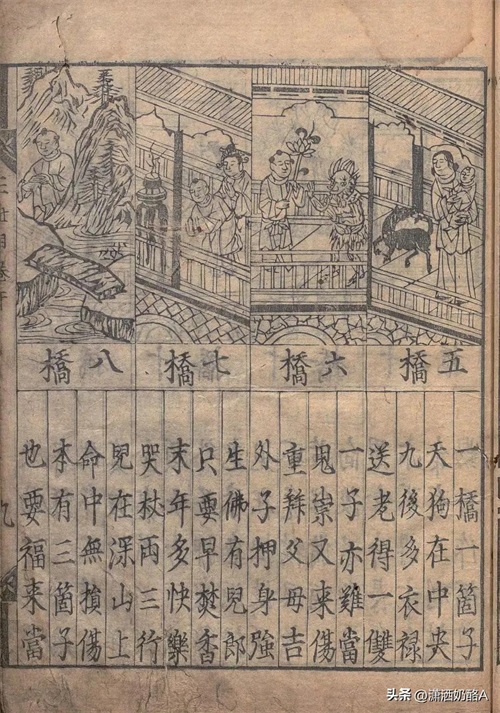 五橋
六橋
七橋
八橋
一橋一箇子
天狗在中央
九後多衣禄
送老得一雙
一子亦難當
鬼祟又来傷
重拜父母吉
外子押身強
生佛有兒郎
只要早焚香
末年多快樂
哭杖两三行
兒在深山上
命中無損傷
本有三箇子
也要福来當
头条 @潇洒奶酪A